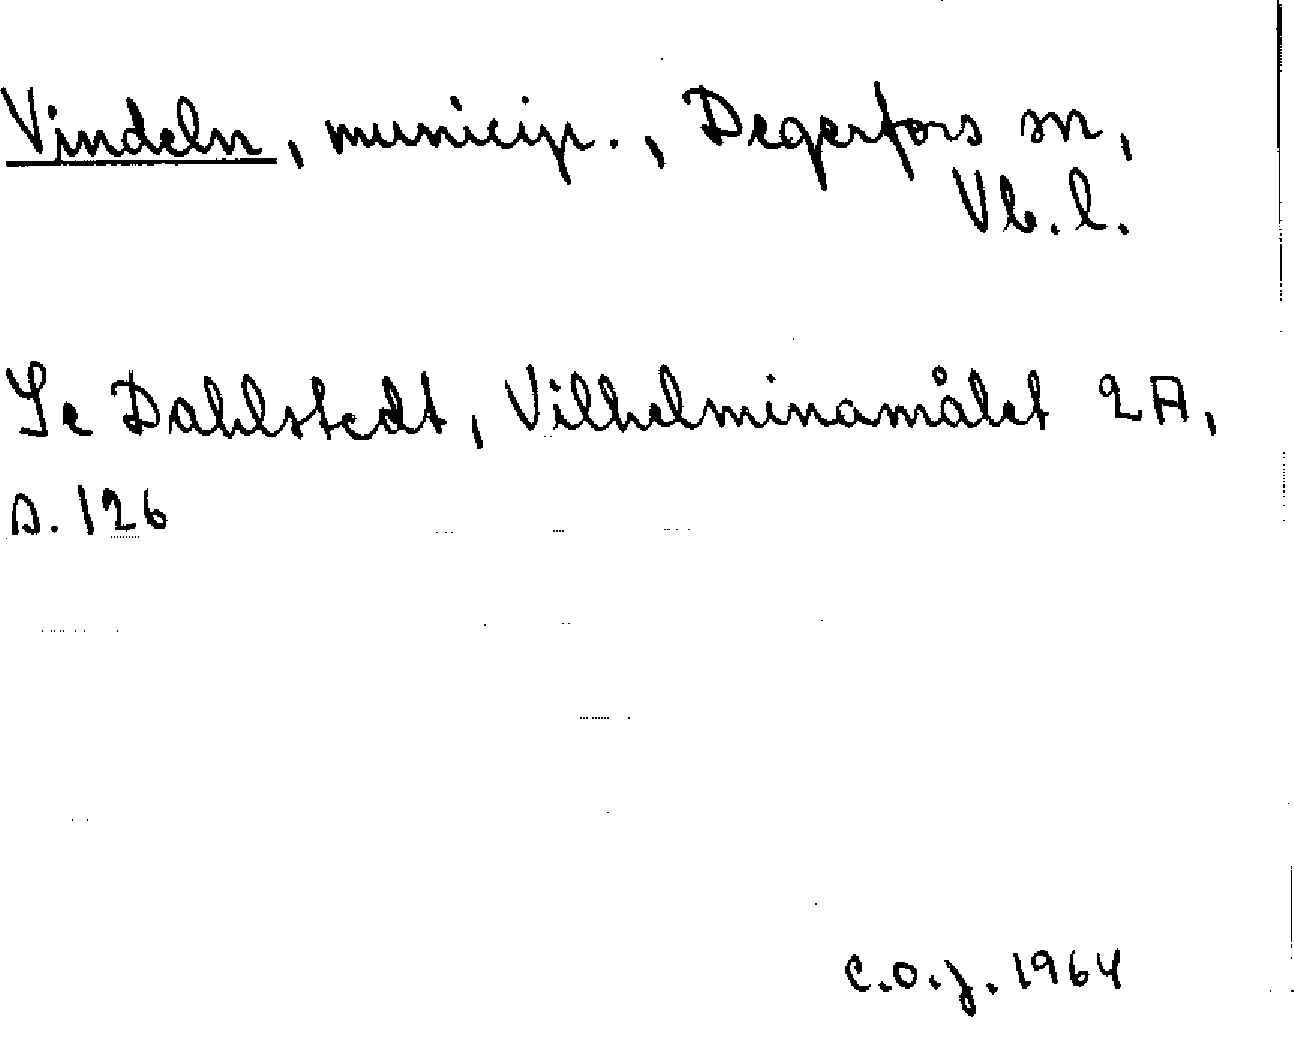 Vindeln, municip., Degerfors sn,
Vb. l.
Se Dahlstedt, Vilhelminamålet 2A,
s. 126
C.O.J. 1964